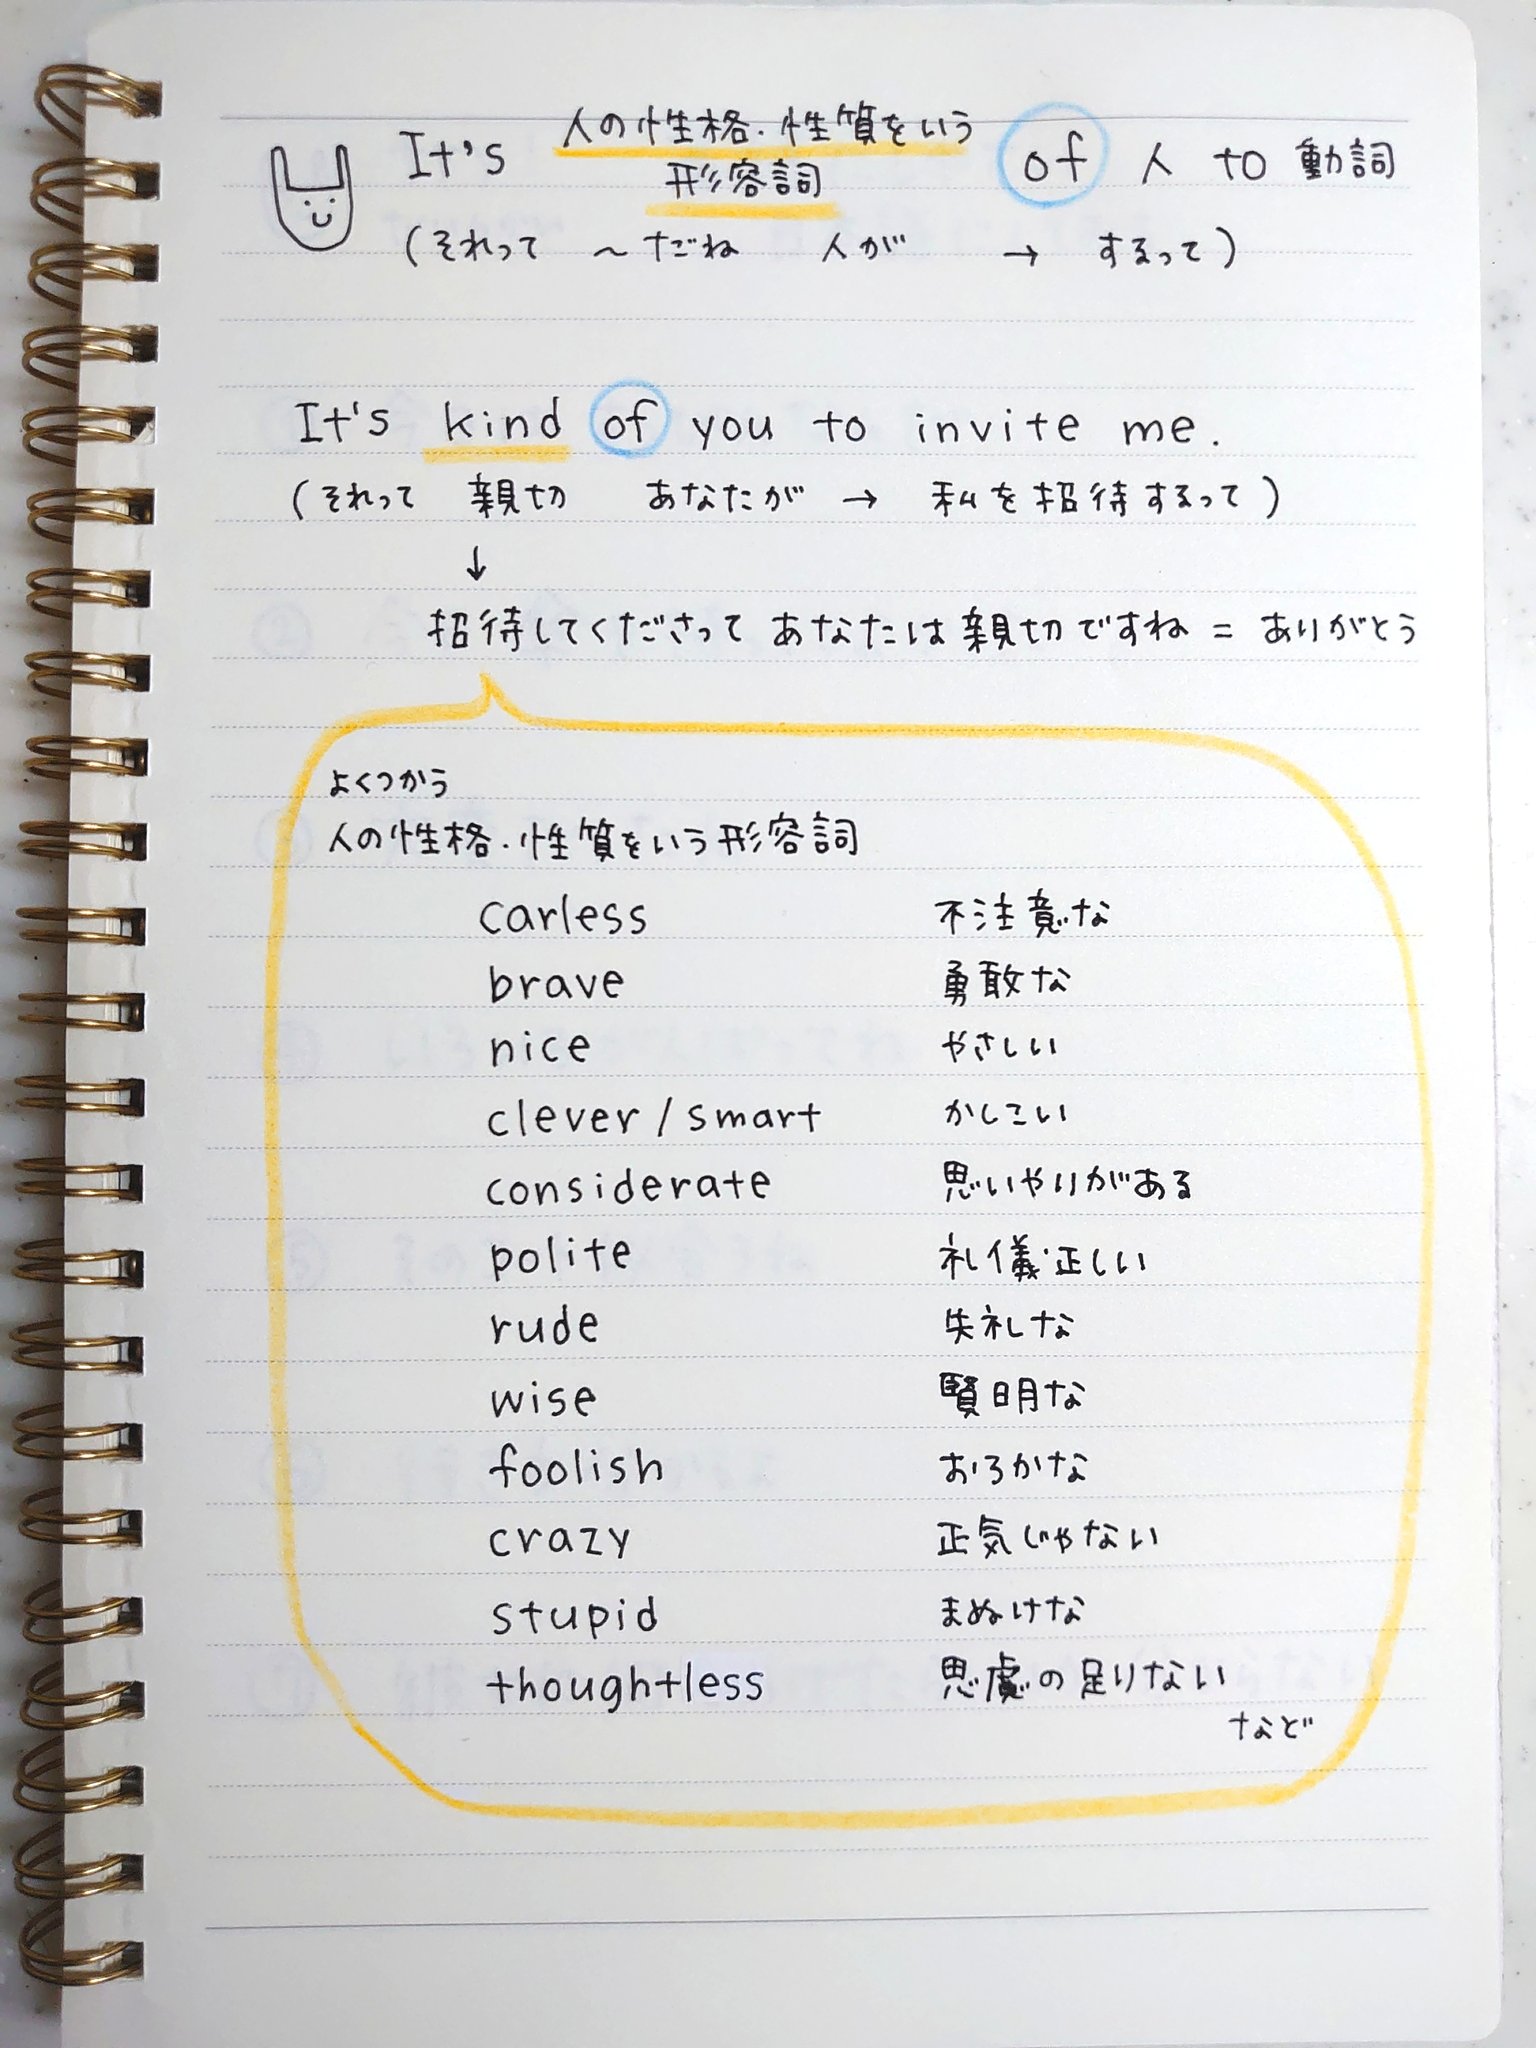 It's 人の性格・性質をいう形容詞 of 人 to 動詞
(それって 〜だね 人が → するって)
It's kind of you to invite me.
(それって 親切 あなたが → 私を招待するって)
↓
招待してくださって あなたは親切ですね = ありがとう
よくつかう
人の性格・性質をいう形容詞
carless 不注意な
brave 勇敢な
nice やさしい
clever / smart かしこい
considerate 思いやりがある
polite 礼儀正しい
rude 失礼な
wise 賢明な
foolish おろかな
crazy 正気じゃない
stupid まぬけな
thoughtless 思慮の足りない
など